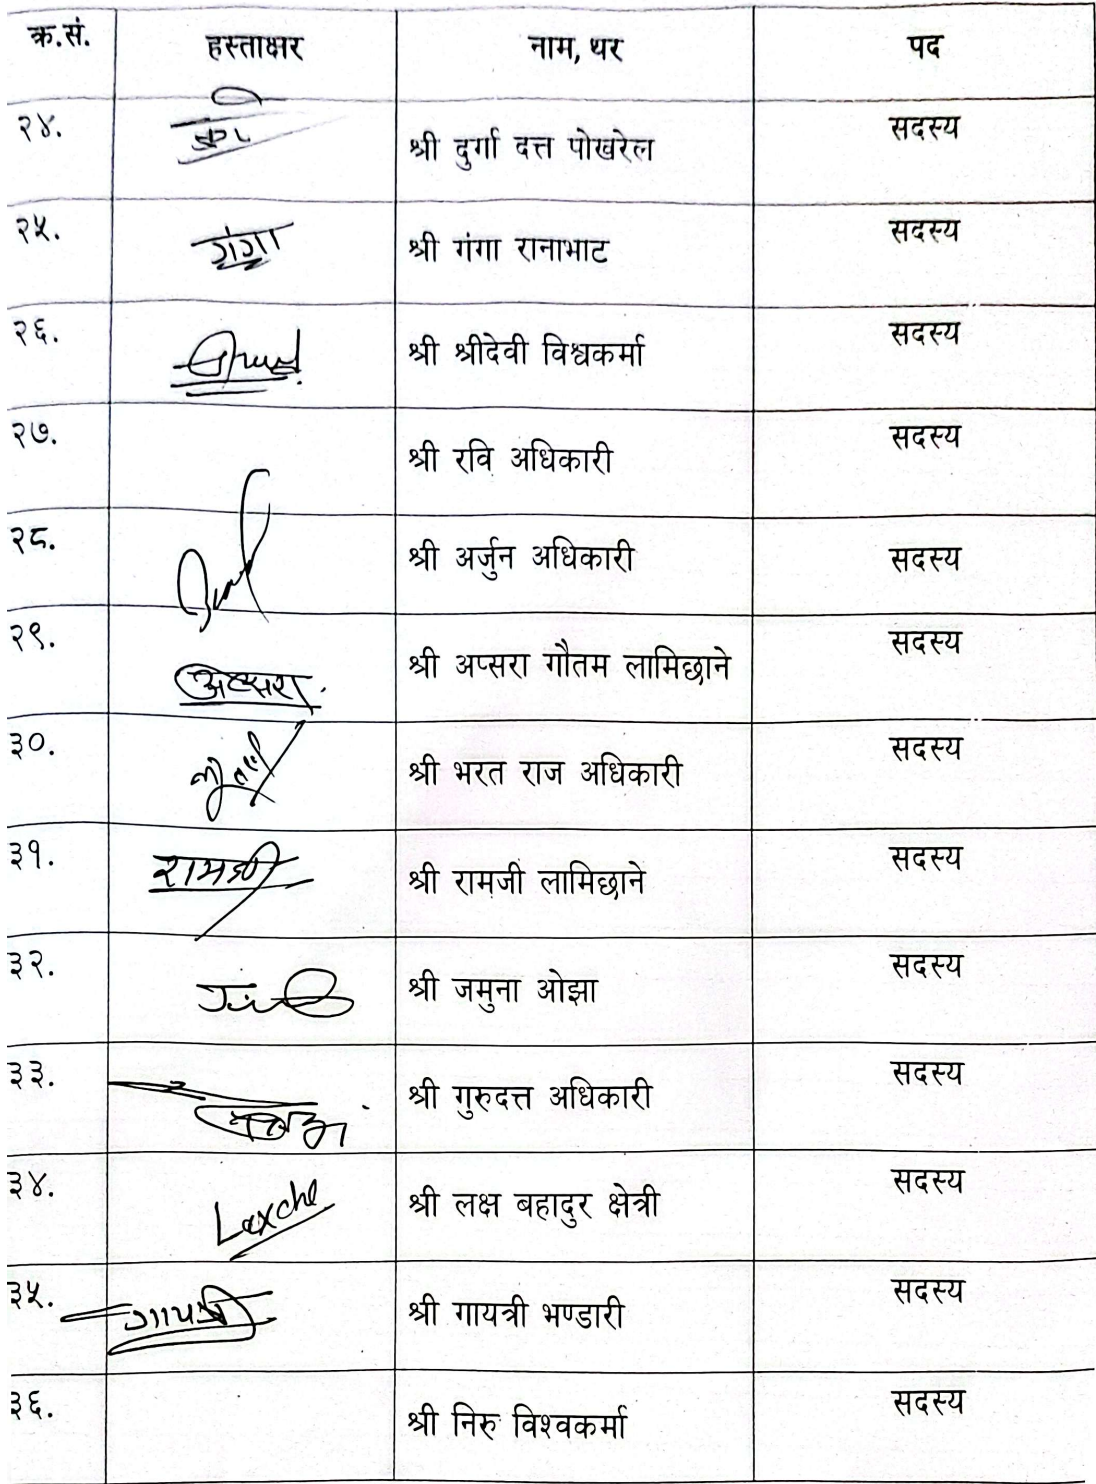 क्र.सं. हस्ताक्षर नाम, थर पद
२४. श्री दुर्गा दत्त पोखरेल सदस्य
२५. गंगा श्री गंगा रानाभाट सदस्य
२६. श्री श्रीदेवी विश्वकर्मा सदस्य
२७. श्री रवि अधिकारी सदस्य
२८. श्री अर्जुन अधिकारी सदस्य
२९. अप्सरा श्री अप्सरा गौतम लामिछाने सदस्य
३०. श्री भरत राज अधिकारी सदस्य
३१. रामजी श्री रामजी लामिछाने सदस्य
३२. श्री जमुना ओझा सदस्य
३३. श्री गुरुदत्त अधिकारी सदस्य
३४. श्री लक्ष बहादुर क्षेत्री सदस्य
३५. गायत्री श्री गायत्री भण्डारी सदस्य
३६. श्री निरु विश्वकर्मा सदस्य